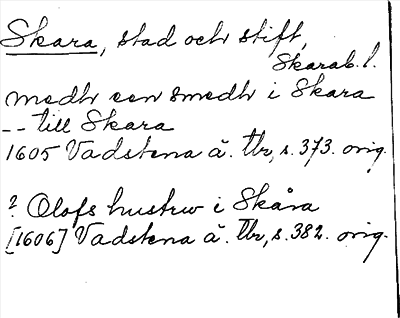 Skara, stad och stift,
Skarab. l.
medh een smedh i Skara
-- till Skara
1605 Vadstena ä. Tbr, s. 373. orig.
? Olofs hustrw i Skåra
[1606] Vadstena ä. Tbr, s. 382. orig.